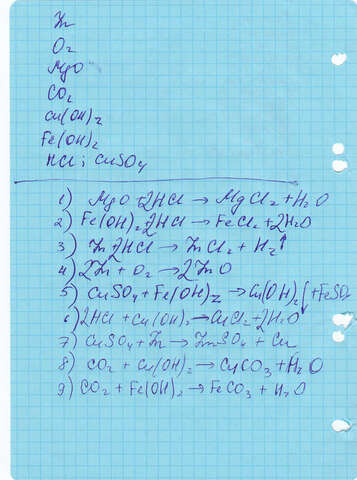 Zn
O₂
MgO
CO₂
Cu(OH)₂
Fe(OH)₂
HCl; CuSO₄
1) MgO + 2HCl → MgCl₂ + H₂O
2) Fe(OH)₂ 2HCl → FeCl₂ + 2H₂O
3) Zn 2HCl → ZnCl₂ + H₂↑
4) 2Zn + O₂ → 2ZnO
5) CuSO₄ + Fe(OH)₂ → Cu(OH)₂↓ + FeSO₄
6) 2HCl + Cu(OH)₂ → CuCl₂ 2H₂O
7) CuSO₄ + Zn → ZnSO₄ + Cu
8) CO₂ + Cu(OH)₂ → CuCO₃ + H₂O
9) CO₂ + Fe(OH)₂ → FeCO₃ + H₂O